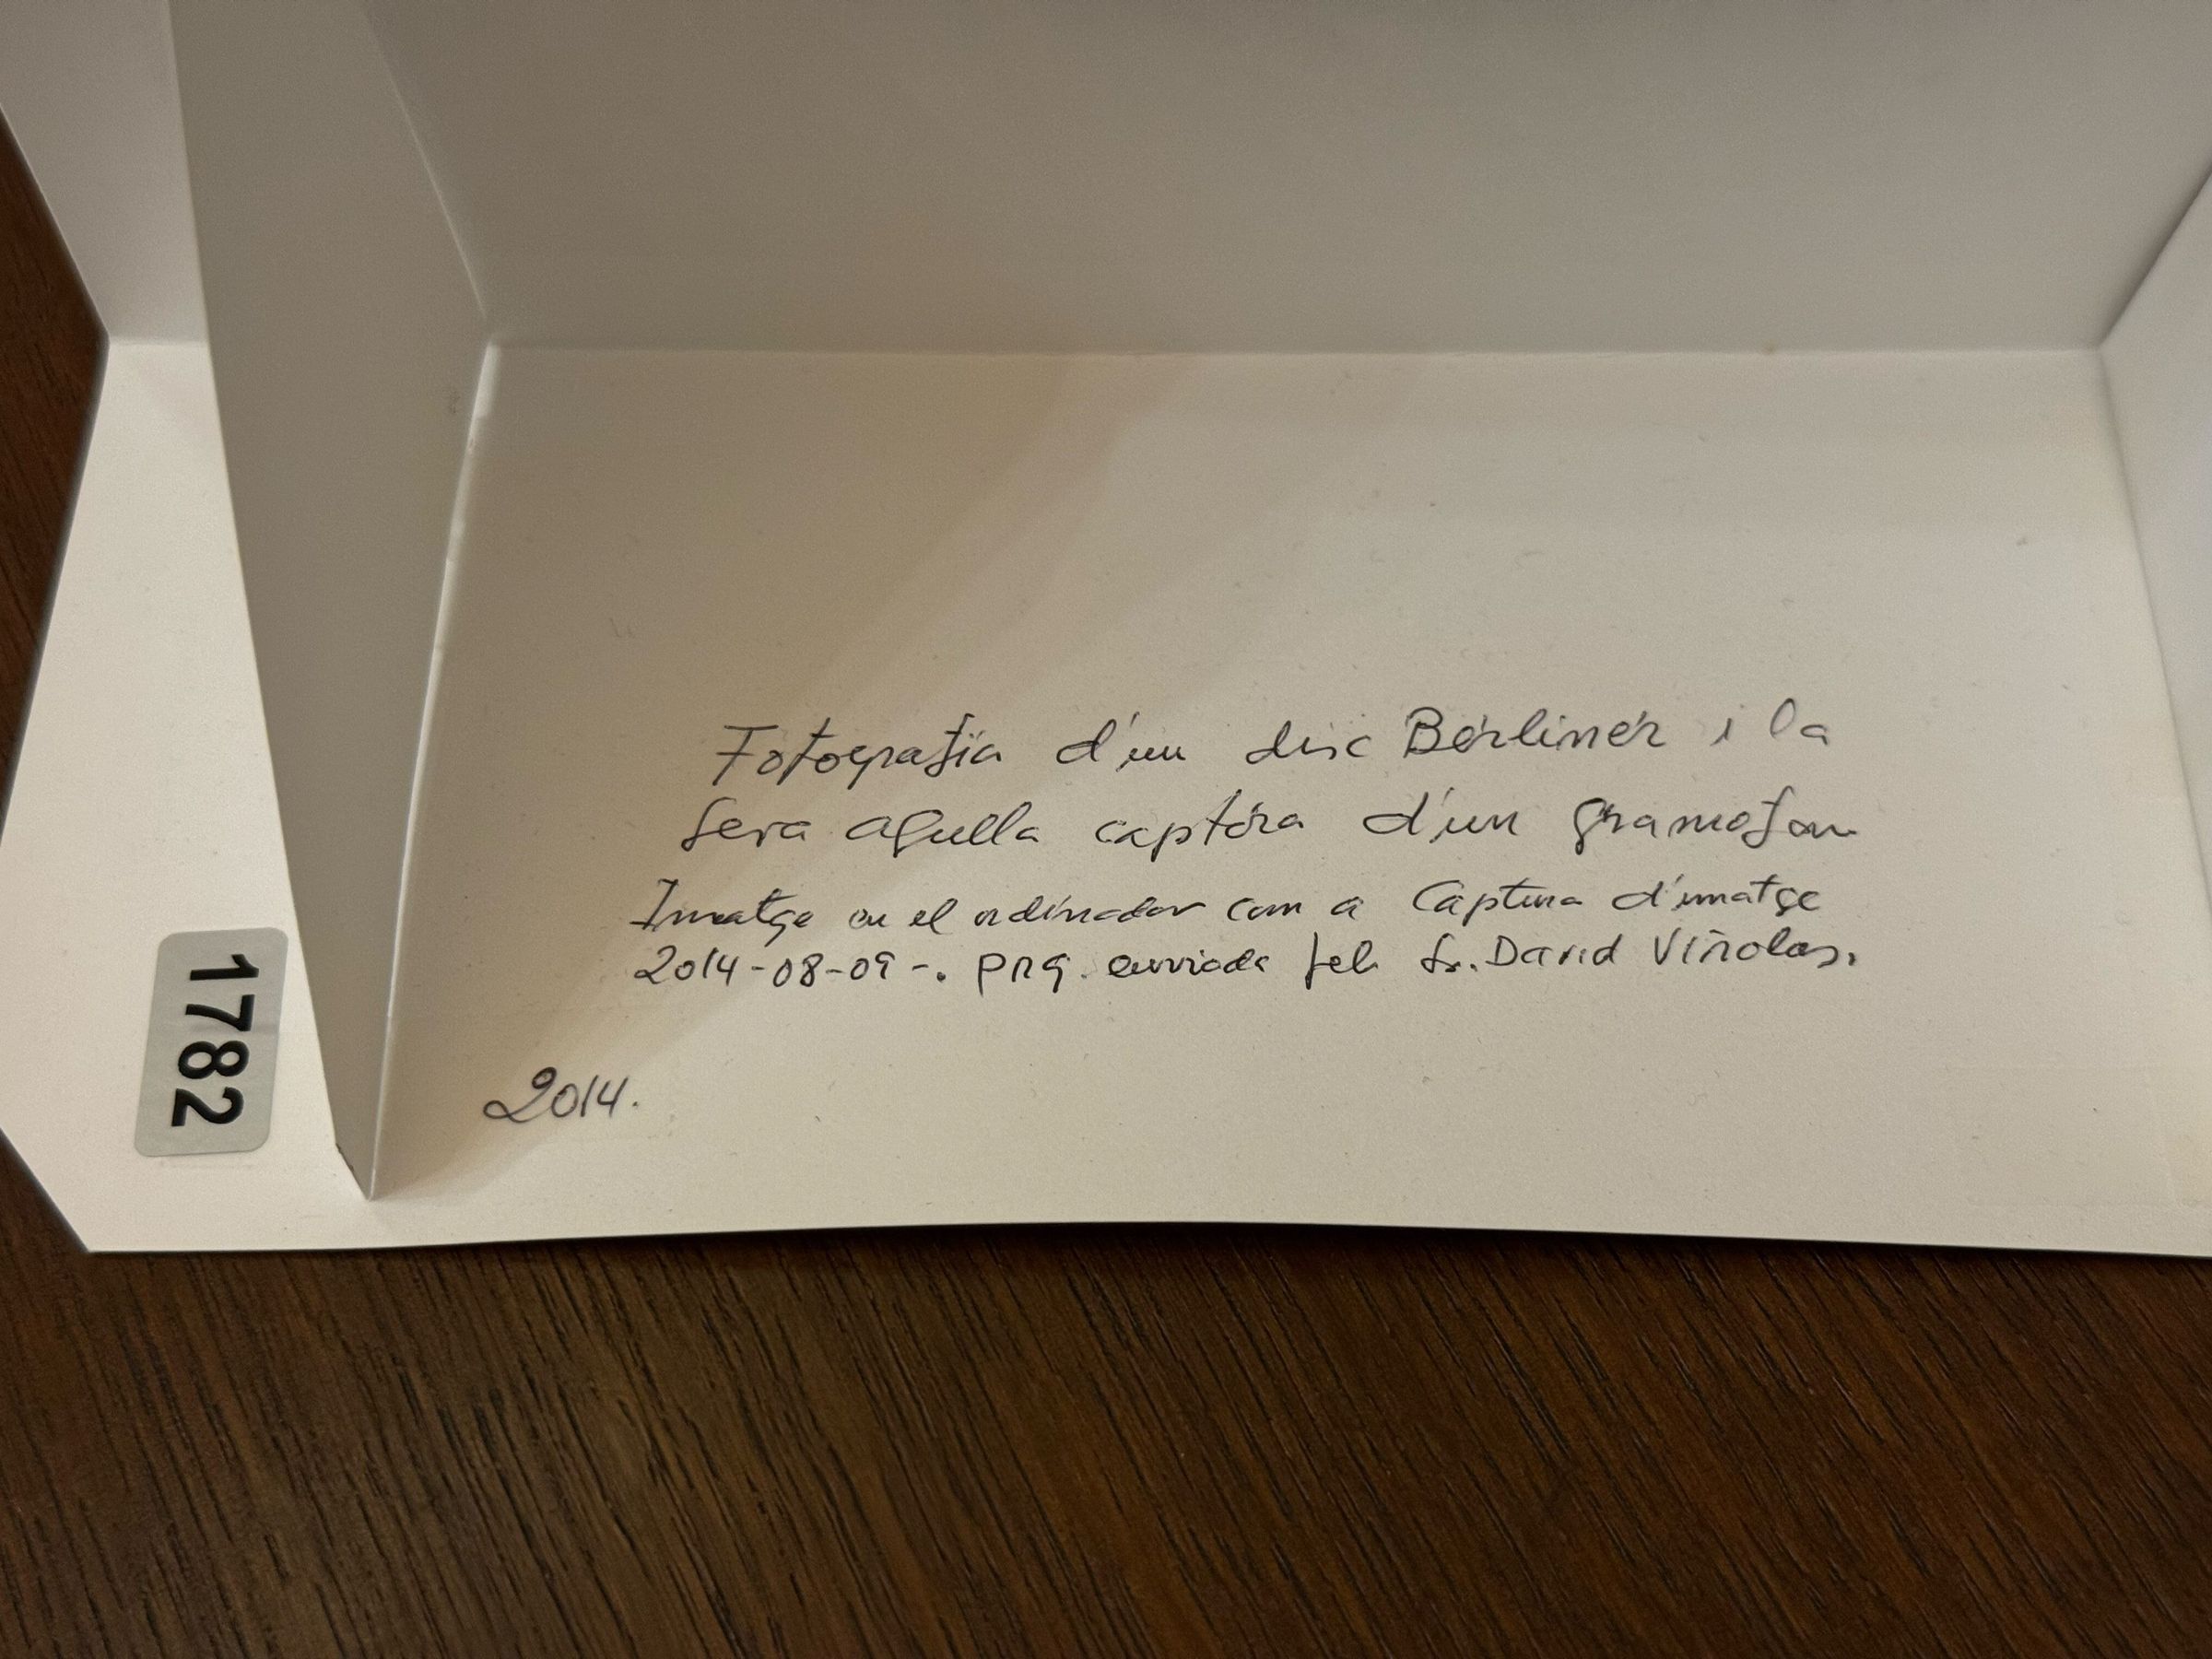 Fotografia d'un disc Berliner i la
seva agulla captora d'un gramofon
Imatge en el ordinador com a Captura d'imatge
2014-08-09-. png. enviada pel Sr. David Viñolas.
2014.
1782